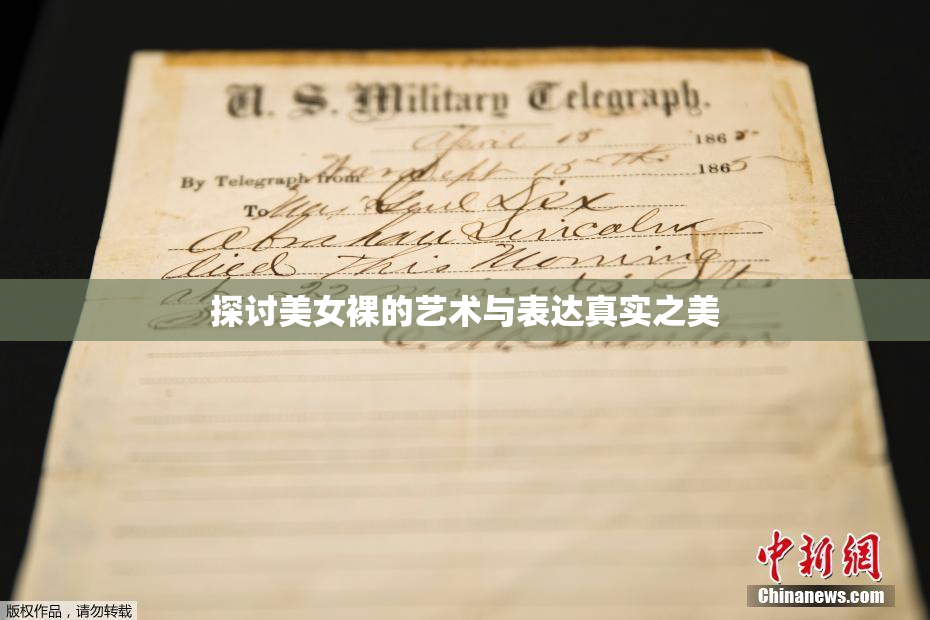 U. S. Military Telegraph.
April 15 1865
By Telegraph from War Dept 15th 1865
To Maj Genl Dix
Abraham Lincoln
died This Morning
at 22 minutes after
探讨美女裸的艺术与表达真实之美
中新網
Chinanews.com
版权作品，请勿转载